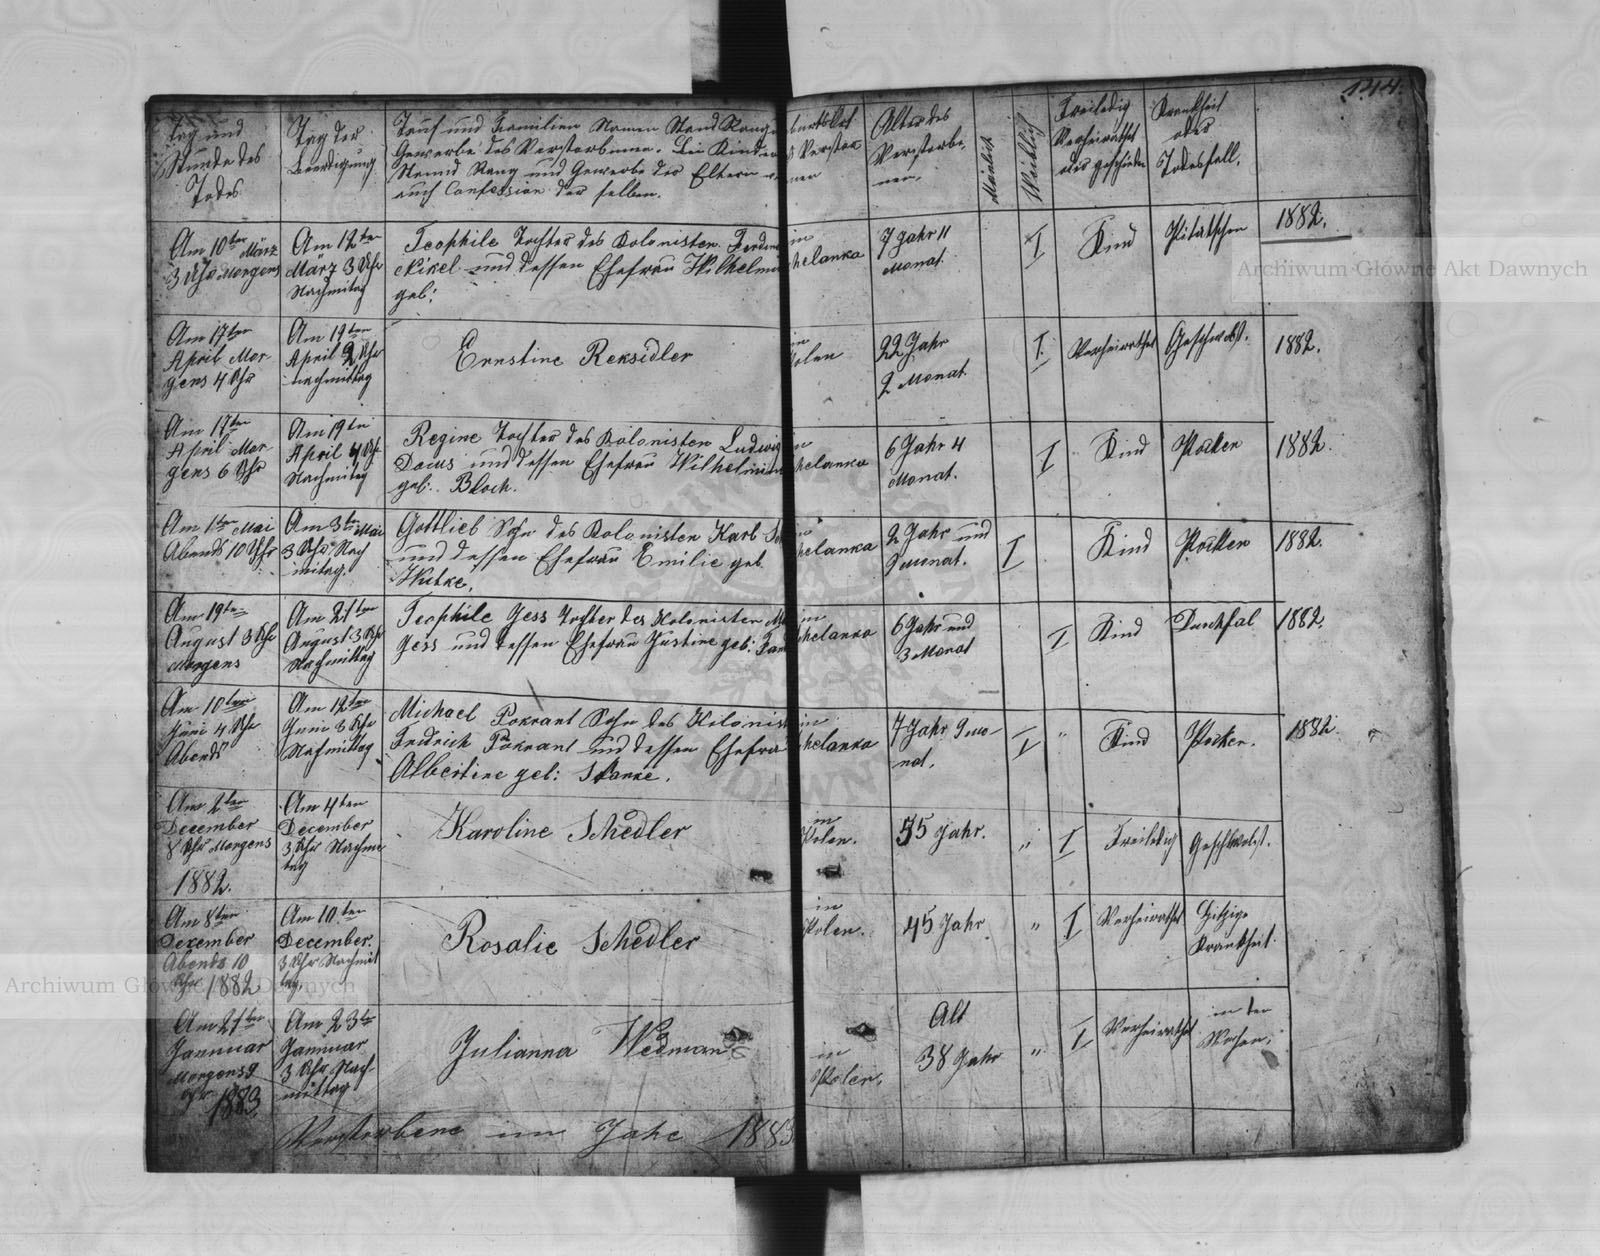 144.
Tag und
Stunde des
Todes
Tag der
Beerdigung
Tauf und Familien Namen Stand Rang
Gewerbe des Verstorbenen. Bei Kinder
Rang und Gewerbe der Eltern
auch Confession der selben.
Alter des
Verstorbe-
nen.
Mänlich
Weiblich
Freiledig
Verheirathet
oder geschieden
Krankheit
oder
Todesfall.
Am 10ten März
3 Uhr Morgens
Am 12ten
März 3 Uhr
Nachmitag
Teophile Tochter des Kolonisten
Nikel und dessen Ehefrau
geb:
in
helanka
7 Jahr 11
Monat
I
Kind
1882.
Am 17ten
April Mor-
gens 4 Uhr
Am 19ten
April 2 Uhr
nachmittag
Ernstine Reksidler
in
Polen
22 Jahr
2 Monat.
I
Verheirathet
Geschwolst.
1882.
Am 17ten
April Mor-
gens 6 Uhr
Am 19ten
April 4 Uhr
Nachmitag
Regine Tochter des Kolonisten Ludwig
Docus und dessen Ehefrau
geb: Bloch.
in
helanka
6 Jahr 4
Monat.
I
Kind
Pocken
1882.
Am 1ten Mai
Abends 10 Uhr
Am 3ten Mai
3 Uhr Nach
mitag.
Gottlieb Sohn des Kolonisten Karl
und dessen Ehefrau Emilie geb.
Wutke.
in
helanka
2 Jahr und
monat.
I
Kind
Pocken
1882.
Am 19ten
August 3 Uhr
Morgens
Am 21ten
August 3 Uhr
Nachmittag
Teophile Jess Tochter des Kolonisten
Jess und dessen Ehefrau Justine geb:
in
helanka
6 Jahr und
3 Monat
I
Kind
Durchfal
1882.
Am 10ten
Juni 4 Uhr
Abends
Am 12ten
Juni 3 Uhr
Nachmittag
Michael Pokrant Sohn des
Fridrich Pokrant und dessen Ehefrau
Albertine geb: Stanke.
in
helanka
7 Jahr 9 mo-
nat.
I "
Kind
Pocken.
1882
Am 2ten
December
8 Uhr Morgens
1882.
Am 4ten
December
3 Uhr Nachmi
tag
Karoline Schedler
in
Polen.
55 Jahr.
" I
Freiledig
Geschwolst.
Am 8ten
Dezember
Abends 10
Uhr 1882
Am 10ten
December.
3 Uhr Nachmit
tag.
Rosalie Schedler
in
Polen.
45 Jahr
" I
Verheirathet
Hitzige
Krankheit.
Am 21ten
Jannuar
Morgens 9
Uhr 1883
Am 23ten
Jannuar
3 Uhr Nach-
mittag
Julianna Wedman
in
Polen.
Alt
38 Jahr
" I
Verheirathet
in den
Wochen.
Verstorbene im Jahe 1883
Archiwum Główne Akt Dawnych
Archiwum Główne Akt Dawnych